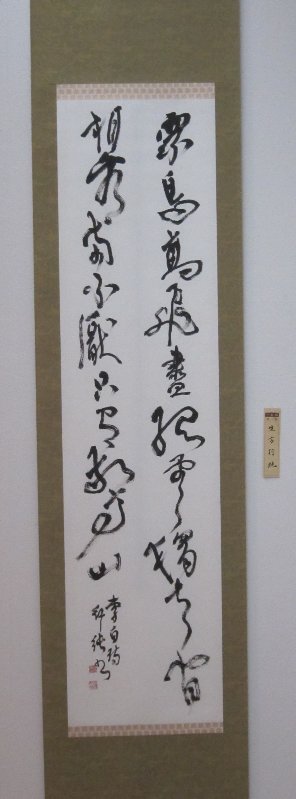 衆鳥高飛盡孤雲獨去閒
相看兩不厭只有敬亭山
李白詩